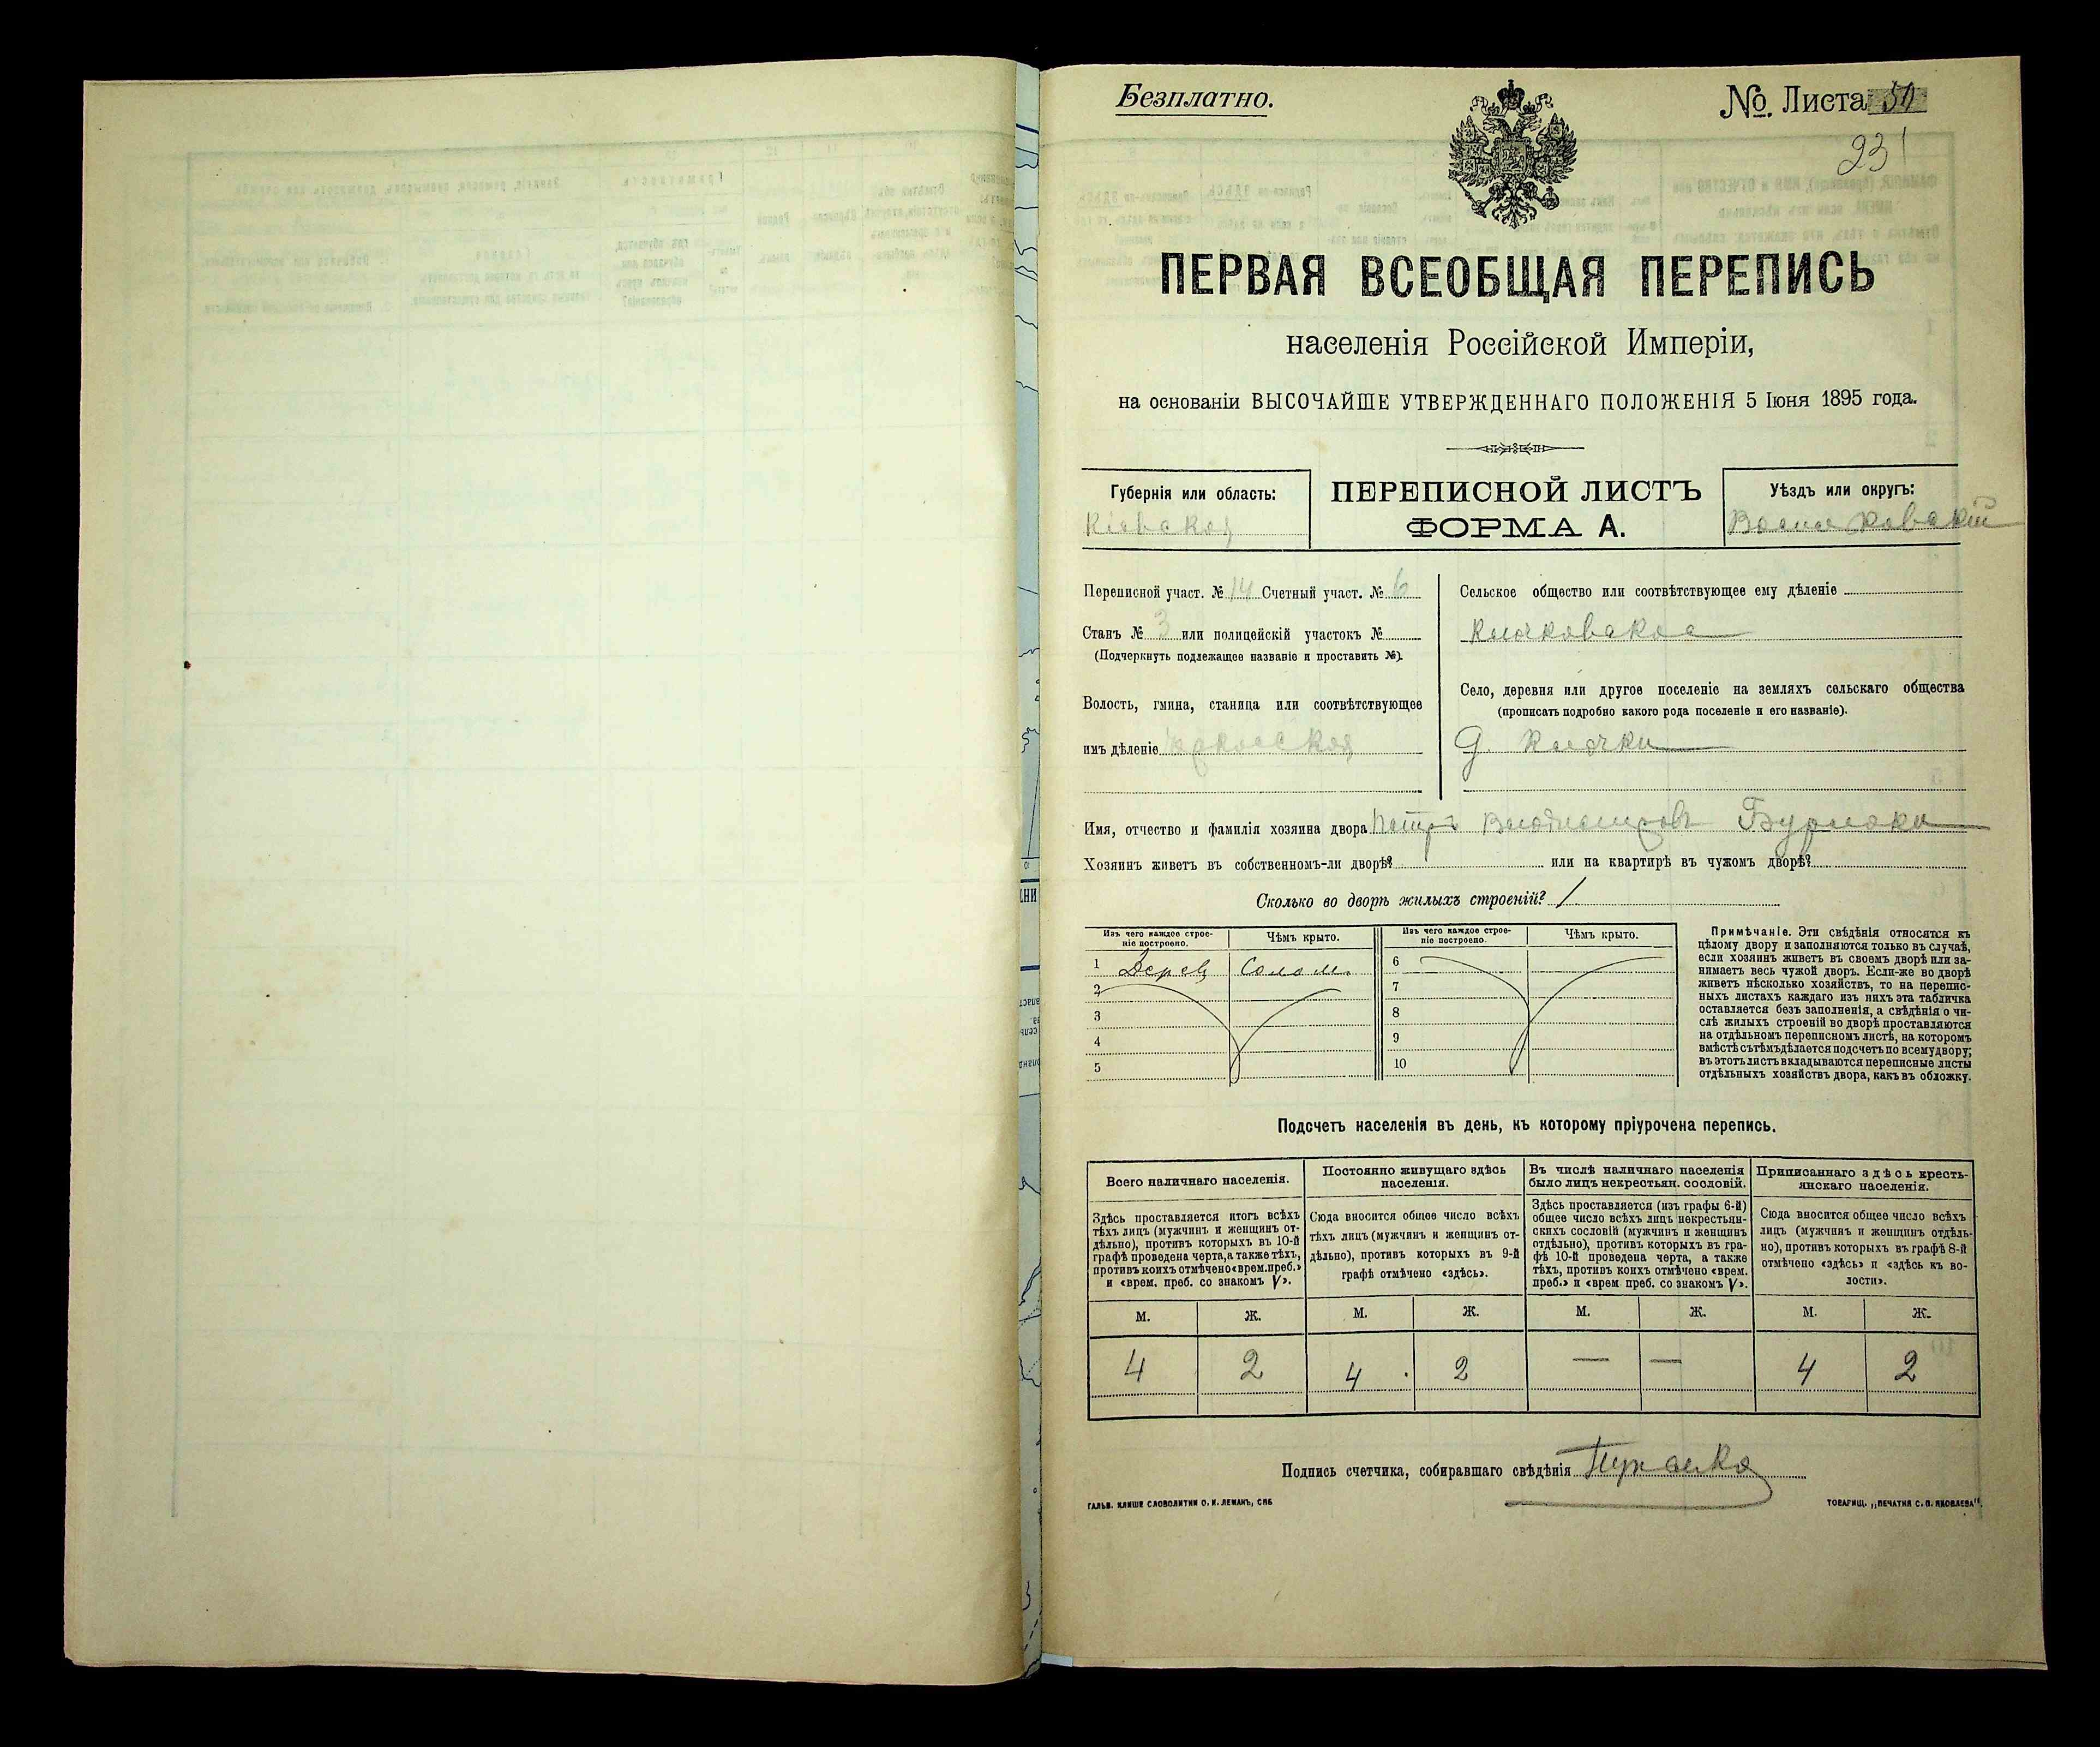 Безплатно.
№ Листа 50
231
ПЕРВАЯ ВСЕОБЩАЯ ПЕРЕПИСЬ
населенія Россійской Имперіи,
на основаніи ВЫСОЧАЙШЕ УТВЕРЖДЕННАГО ПОЛОЖЕНІЯ 5 Іюня 1895 года.
Губернія или область:
Кіевская
ПЕРЕПИСНОЙ ЛИСТЪ
ФОРМА А.
Уѣздъ или округъ:
Васильковскій
Переписной участ. № 14 Счетный участ. № 6
Станъ № 3 или полицейскій участокъ №
(Подчеркнуть подлежащее названіе и проставить №).
Волость, гмина, станица или соотвѣтствующее
имъ дѣленіе
Сельское общество или соотвѣтствующее ему дѣленіе
Клочковское
Село, деревня или другое поселеніе на земляхъ сельскаго общества
(прописать подробно какого рода поселеніе и его названіе).
д. Клочки
Имя, отчество и фамилія хозяина двора Петръ Бурлака
Хозяинъ живетъ въ собственномъ-ли дворѣ? или на квартирѣ въ чужомъ дворѣ?
Сколько во дворѣ жилыхъ строеній? 1
Изъ чего каждое строе-
ніе построено.
Чѣмъ крыто.
1 Дерев Солом.
2
3
4
5
Изъ чего каждое строе-
ніе построено.
Чѣмъ крыто.
6
7
8
9
10
Примѣчаніе. Эти свѣдѣнія относятся къ
цѣлому двору и заполняются только въ случаѣ,
если хозяинъ живетъ въ своемъ дворѣ или за-
нимаетъ весь чужой дворъ. Если-же во дворѣ
живетъ нѣсколько хозяйствъ, то на перепис-
ныхъ листахъ каждаго изъ нихъ эта табличка
оставляется безъ заполненія, а свѣдѣнія о чи-
слѣ жилыхъ строеній во дворѣ проставляются
на отдѣльномъ переписномъ листѣ, на которомъ
вмѣстѣ съ тѣмъ дѣлается подсчетъ по всему двору;
въ этотъ листъ вкладываются переписные листы
отдѣльныхъ хозяйствъ двора, какъ въ обложку.
Подсчетъ населенія въ день, къ которому пріурочена перепись.
Всего наличнаго населенія.
Здѣсь проставляется итогъ всѣхъ
тѣхъ лицъ (мужчинъ и женщинъ от-
дѣльно), противъ которыхъ въ 10-й
графѣ проведена черта, а также тѣхъ,
противъ коихъ отмѣчено «врем. преб.»
и «врем. преб. со знакомъ V».
Постоянно живущаго здѣсь
населенія.
Сюда вносится общее число всѣхъ
тѣхъ лицъ (мужчинъ и женщинъ от-
дѣльно), противъ которыхъ въ 9-й
графѣ отмѣчено «здѣсь».
Въ числѣ наличнаго населенія
было лицъ некрестьян. сословій.
Здѣсь проставляется (изъ графы 6-й)
общее число всѣхъ лицъ некрестьян-
скихъ сословій (мужчинъ и женщинъ
отдѣльно), противъ которыхъ въ гра-
фѣ 10-й проведена черта, а также
тѣхъ, противъ коихъ отмѣчено «врем.
преб.» и «врем. преб. со знакомъ V».
Приписаннаго здѣсь кресть-
янскаго населенія.
Сюда вносится общее число всѣхъ
лицъ (мужчинъ и женщинъ отдѣль-
но), противъ которыхъ въ графѣ 8-й
отмѣчено «здѣсь» и «здѣсь къ во-
лости».
М. Ж. М. Ж. М. Ж. М. Ж.
4 2 4 2 — — 4 2
Подпись счетчика, собиравшаго свѣдѣнія
ГАЛЬВ. КЛИШЕ СЛОВОЛИТНИ О. И. ЛЕМАНЪ, СПБ
ТОВАРИЩ. „ПЕЧАТНЯ С. П. ЯКОВЛЕВА".